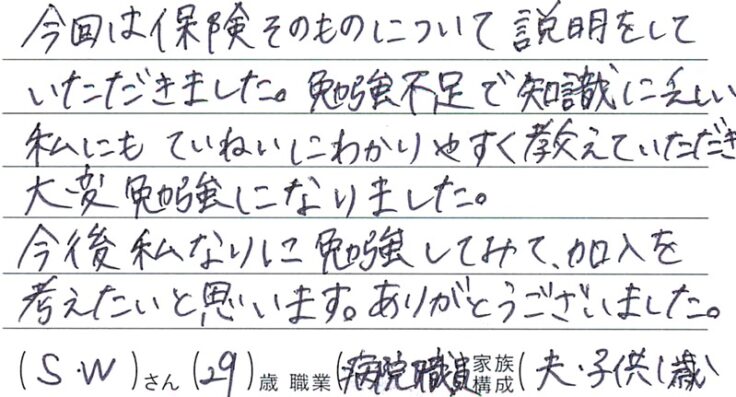 今回は保険そのものについて説明をして
いただきました。勉強不足で知識に乏しい
私にもていねいにわかりやすく教えていただき
大変勉強になりました。
今後私なりに勉強してみて、加入を
考えたいと思います。ありがとうございました。
(S.W)さん(29)歳 職業(病院職員 家族構成(夫・子供1歳)